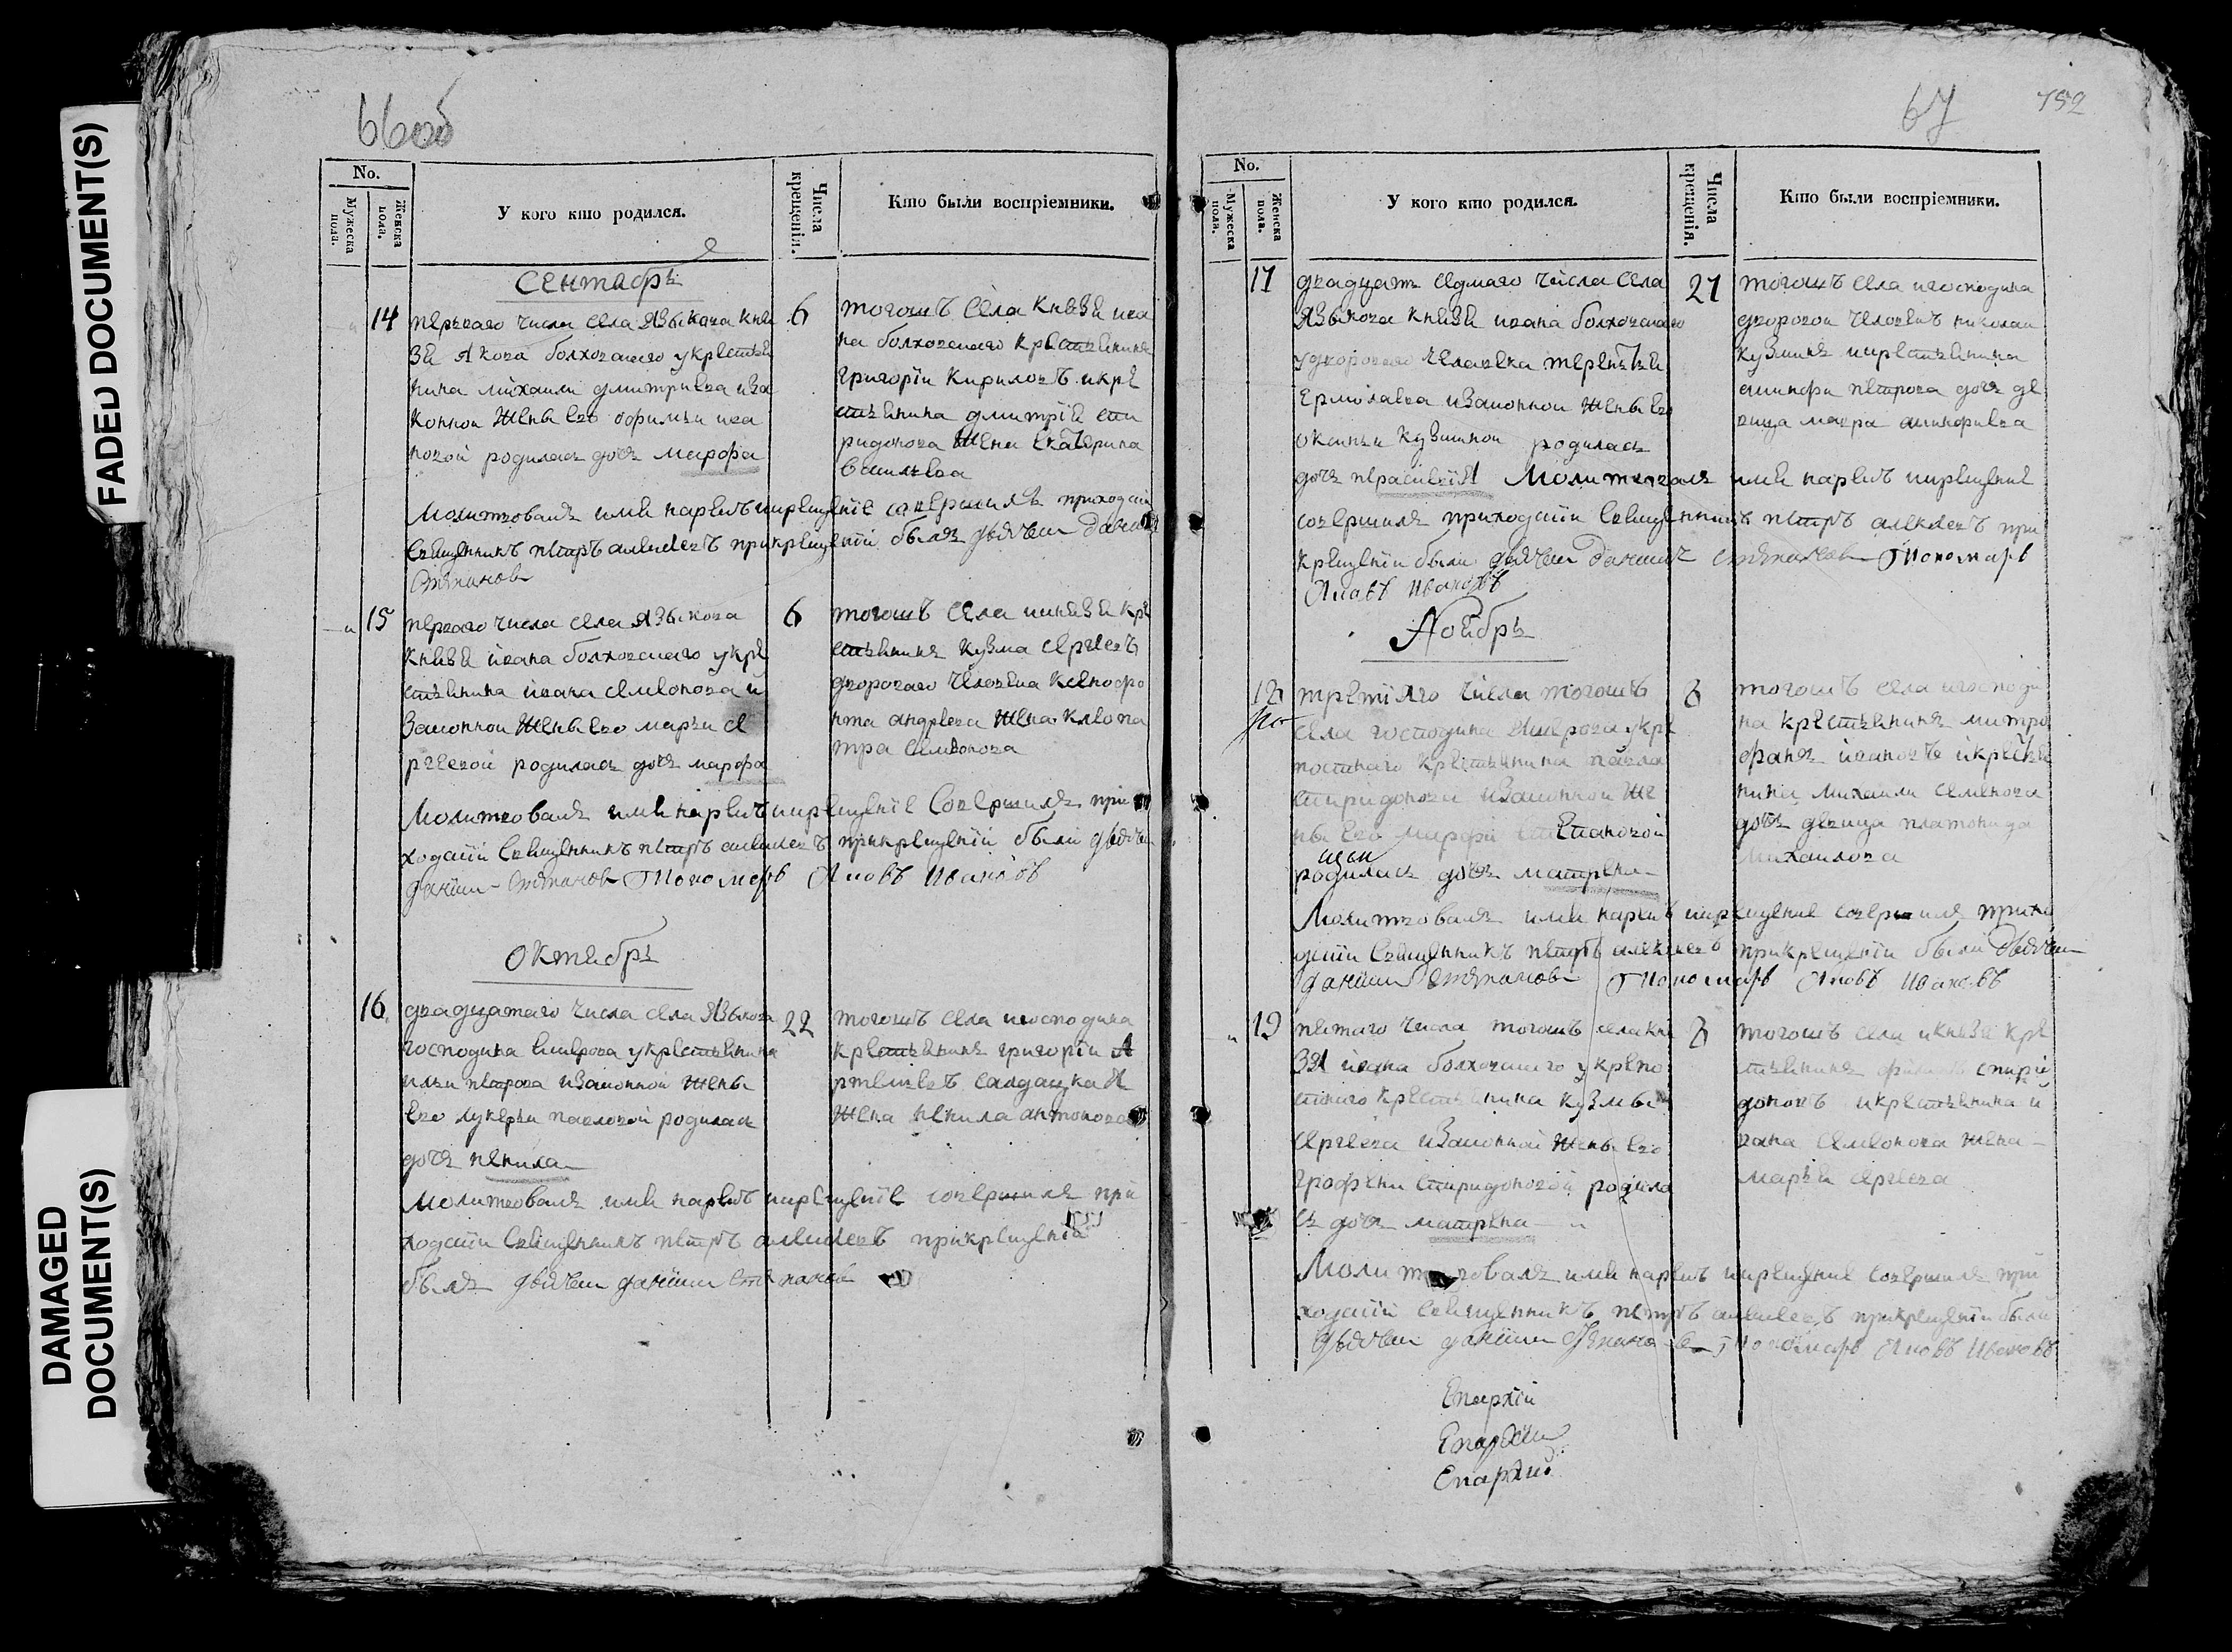 FADED DOCUMENT(S)
DAMAGED
DOCUMENT(S)
66об
No.
Мужеска пола.
Женска пола.
У кого кто родился.
Числа крещенія.
Кто были воспріемники.
Сентябрь
14
перваго числа села Языкова Кня
зя Якова болховскаго у крестья
нина михаила дмитриева и за
конной жены его офимьи ива
новой родилась дочь марфа
6
тогожъ села Князя ива
на болховскаго крестьянинъ
григорїи Кириловъ и кре
стьянина дмитрїя спи
ридонова жена Екатерина
васильева
Молитвовалъ имя нарекъ и крещенїе совершилъ приходскїи
священникъ петръ алексеевъ при крещенїи былъ дьячекъ данила
Степановъ
15
перваго числа села Языкова
Князя ивана болховскаго у кре
стьянина ивана семионова и
законной жены его марьи се
ргеевой родилась дочь марфа
6
тогожъ села и князя кре
стьянинъ кузма сергеевъ
двороваго человека ксеноѳо
нта андреева жена клеопа
тра семионова
Молитвовалъ имя нарекъ и крещенїе совершилъ при
ходскїи священникъ петръ алексеевъ при крещенїи были дьячекъ
данїилъ Степановъ Пономарь Яковъ Ивановъ
Октябрь
16
двадцатаго числа села Языкова
господина у крестьянина
ильи петрова и законной жены
его лукерьи павловой родилась
дочь ненила
22
тогожъ села и господина
крестьянинъ григорїи А
ртемьевъ салдацкая
жена ненила антонова
Молитвовалъ имя нарекъ и крещенїе совершилъ при
ходскїи священникъ петръ алексеевъ при крещенїи
былъ дьячекъ данїилъ Степановъ
67
152
No.
Мужеска пола.
Женска пола.
У кого кто родился.
Числа крещенія.
Кто были воспріемники.
17
двадцать седмаго числа села
Языкова князя ивана болховскаго
у двороваго человека терентья
Ермолаева и законной жены его
оксиньи кузминой родилась
дочь
27
тогожъ села и господина
дворовой человекъ николаи
кузминъ и крестьянина
петрова дочь де
вица мавра
Молитвовалъ имя нарекъ и крещенїе
совершилъ приходскїи священникъ петръ алексеевъ при
крещенїи были дьячекъ данилъ Степановъ Пономарь
Яковъ Ивановъ
Ноябрь
18
третїяго числа тогожъ
села господина у кре
постнаго крестьянина павла
спиридонова и законной же
ны его марфы степановой
родилась дочь матрена
8
тогожъ села и господи
на крестьянинъ митро
фанъ ивановъ и крестья
нина михаила семенова
дочь девица платонида
михаилова
Молитвовалъ имя нарекъ и крещенїе совершилъ прихо
дскїи священникъ петръ алексеевъ при крещенїи были дьячекъ
данїилъ Степановъ Пономарь Яковъ Ивановъ
19
пятаго числа тогожъ села кня
зя ивана болховскаго у крепо
стнаго крестьянина кузмы
сергеева и законной жены его
графены спиридоновой родила
сь дочь матрена
8
тогожъ села и князя кре
стьянинъ филипъ спири
доновъ и крестьянина и
вана семионова жена
марья сергеева
Молитвовалъ имя нарекъ и крещенїе совершилъ при
ходскїй священникъ петръ алексеевъ при крещенїи были
дьячекъ данїилъ Степановъ Пономарь Яковъ Ивановъ
Епархїи
Епархїи
Епархїи